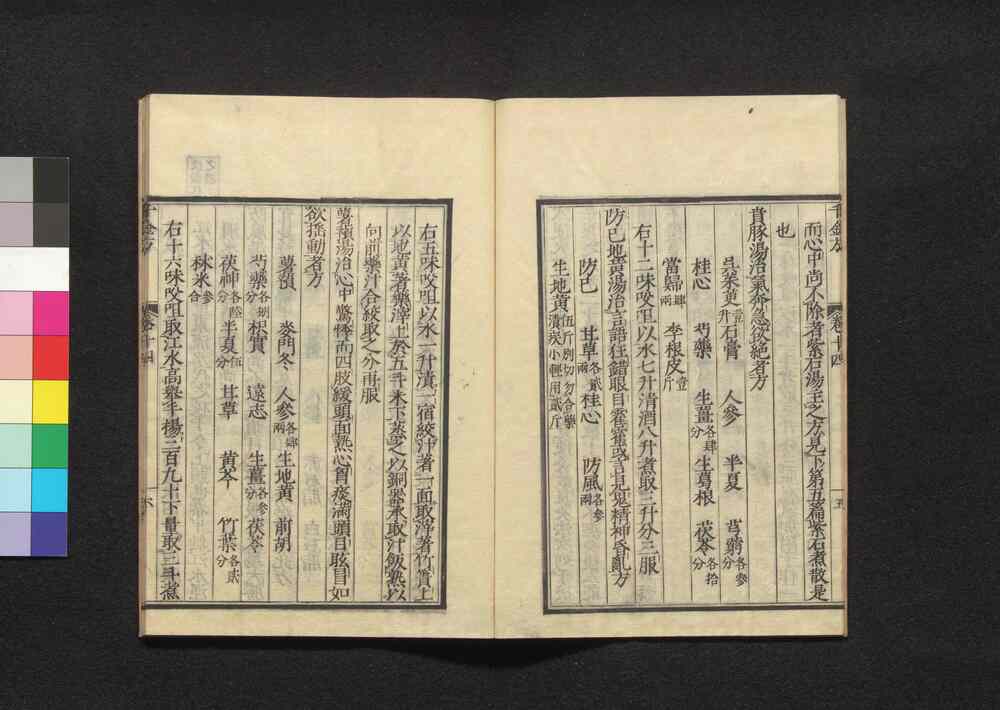 而心中尚不除者紫石湯主之方見下第五篇紫石煮散是
也
賁豚湯治氣奔急欲絶者方
吳茱萸壹升 石膏 人參 半夏 芎藭各參分
桂心 芍藥 生薑各肆分 生葛根 茯苓各拾分
當歸肆兩 李根皮壹斤
右十二味㕮咀以水七升清酒八升煮取三升分三服
防已地黃湯治言語狂錯眼目霍霍或言見鬼精神昏亂方
防已 甘草各貳兩 桂心 防風各參兩
生地黃伍斤別切勿合藥漬炭小輕用貳斤
千金方
卷十四
五
右五味㕮咀以水一升漬一宿絞汁著一面取滓著竹簀上
以地黃著藥滓上於五斗米下蒸之以銅器承取汁飯熟以
向前藥汁合絞取之分再服
薯預湯治心中驚悸而四肢緩頭面熱心胷痰滿頭目眩冒如
欲搖動者方
薯預 麥門冬 人參各肆兩 生地黃 前胡
芍藥各捌分 枳實 遠志 生薑各參分 茯苓
茯神各陸分 半夏伍分 甘草 黃芩 竹葉各貳分
秫米參合
右十六味㕮咀取江水高舉手楊三百九十下量取三斗煮
千金方
卷十四
六